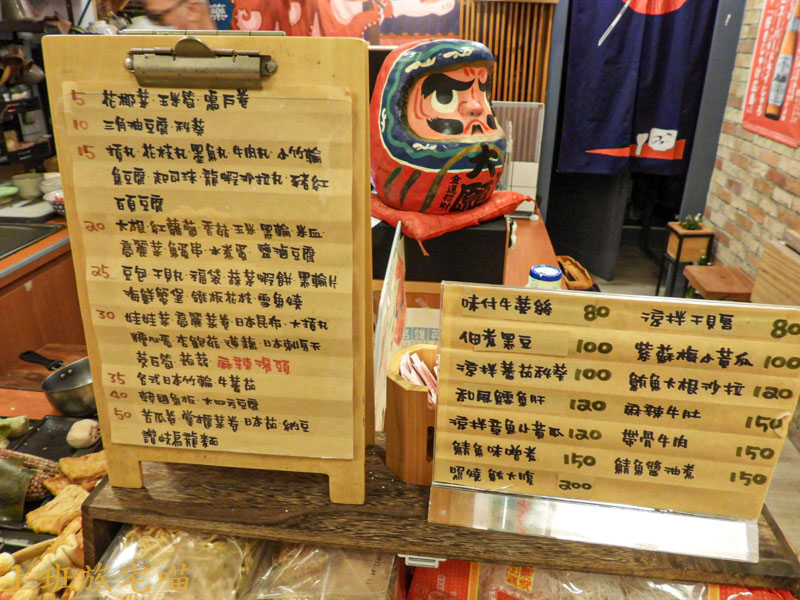 5 花椰菜·玉米筍·鳴戶卷
10 三角油豆腐·秋葵
15 摃丸·花枝丸·墨魚丸·牛肉丸·小竹輪
魚豆腐·起司球·龍蝦沙拉丸·豬紅
百頁豆腐
20 大根·紅蘿蔔·香菇·玉米·黑輪·米血
高麗菜·鱈魚串·水煮蛋·鹽滷豆腐
25 豆包·干貝丸·福袋·蔬菜蝦餅·黑輪片
海鮮蟹堡·鐵板花枝·雪魚燒
30 娃娃菜·高麗菜卷·日本昆布·大摃丸
糖心蛋·杏鮑菇·日本刺身天
茭白筍·菇菇·麻辣湯頭
35 台式日本竹輪·牛蕃茄
40 韓國魚板·大四方豆腐
50 苦瓜卷·掌櫃菜卷·日本茄·納豆
讚岐烏龍麵
味付牛蒡絲 80
佃煮黑豆 100
涼拌蕃茄秋葵 100
和風鱈魚肝 120
涼拌章魚小黃瓜 120
鯖魚味噌煮 150
照燒魷大腹 200
涼拌干貝唇 80
紫蘇梅小黃瓜 100
鮪魚大根沙拉 120
麻辣牛肚 150
帶骨牛肉 150
鯖魚醬油煮 150
大願
上班族宅喵